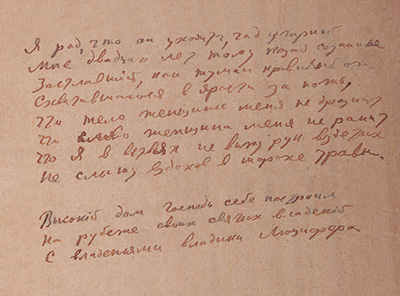 Я рад, что он уходит, чад угарный
Мне двадцать лет тому назад сознанье
Застлавшій, как туман кровавый очи
Схватившемуся в ярости за ножь;
Что тело женщины меня не дразнит,
Что слава женщины меня не ранит,
Что я в ветвях не вижу рук воздетых,
Не слышу вздохов в шорохе травы.
Высокій дом Господь себе построил
На рубеже своих святых владеній
С владеньями владыки Люцифера